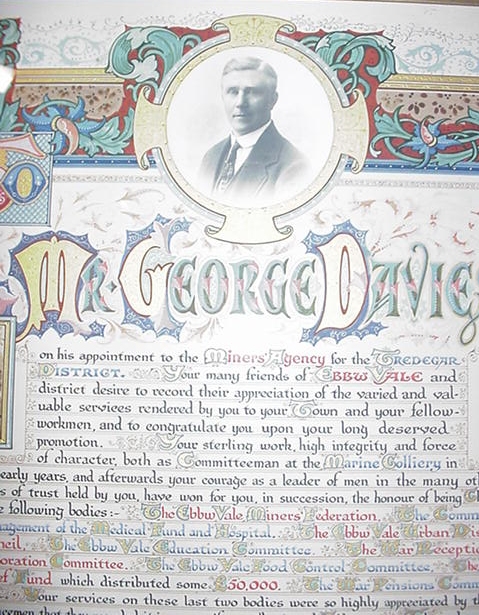 To
Mr. George Davies
on his appointment to the Miners' Agency for the Tredegar
District. Your many friends of Ebbw Vale and
district desire to record their appreciation of the varied and val-
uable services rendered by you to your Town and your fellow-
workmen, and to congratulate you upon your long deserved
promotion. Your sterling work, high integrity and force
of character, both as Committeeman at the Marine Colliery in
early years, and afterwards your courage as a leader of men in the many
of trust held by you, have won for you, in succession, the honour of being
following bodies:- The Ebbw Vale Miners' Federation, The
of the Medical Fund and Hospital. The Ebbw Vale Urban
The Ebbw Vale Education Committee. The War
Committee. The Ebbw Vale Food Control Committee, The
Fund which distributed some £50,000. The War Pensions
Your services on these last two bodies were so highly appreciated by
that they